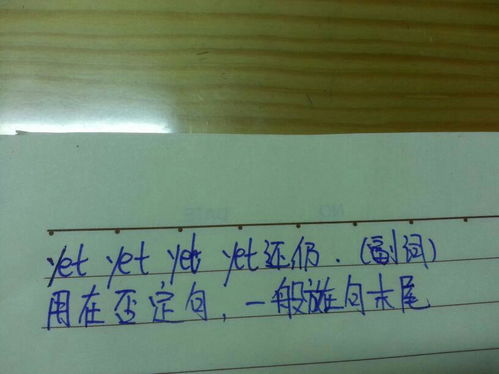 yet yet yet yet还仍.(副词)
用在否定句,一般放在句末尾